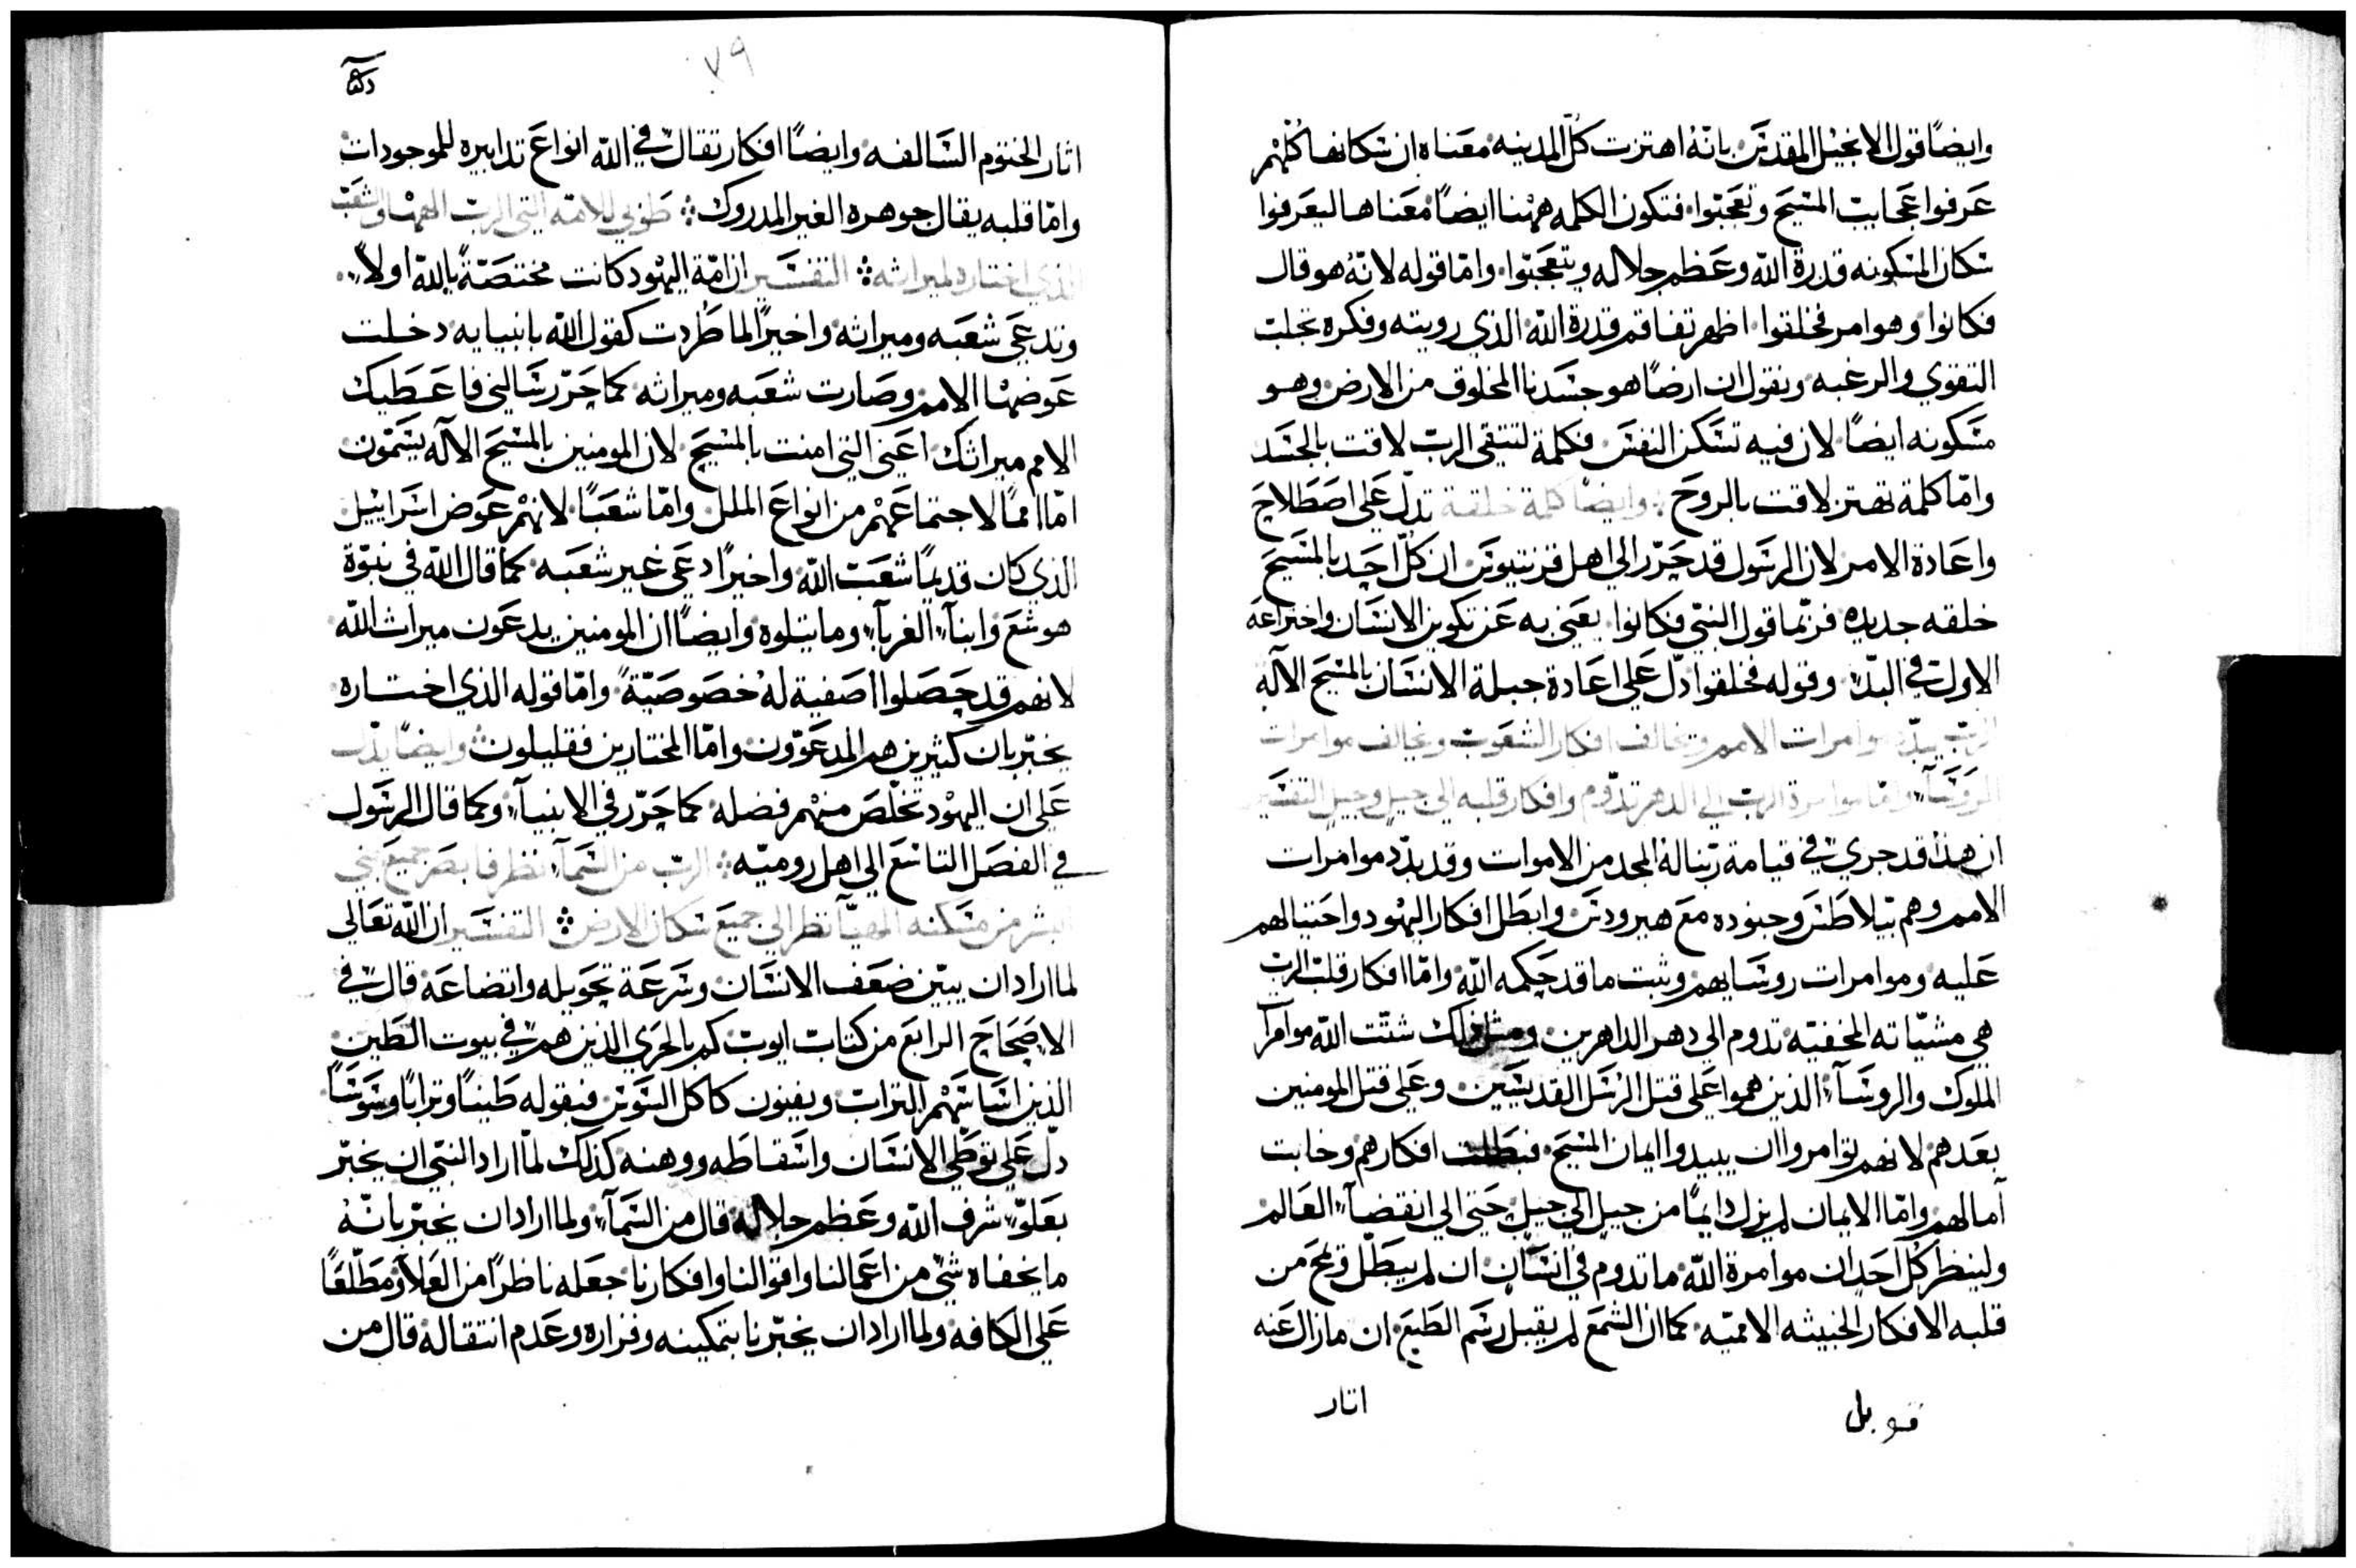 وايضًا قول الانجيل المقدس بانّهُ اهتزت كلّ المدينه معناه ان سكانها كلّهم
عرفوا عجايب المسيح وتعجّبوا فتكون الكلمه ههنا ايضًا معناها ليعرفوا
سكان المسكونه قدرة الله وعظم جلاله ويتعجّبوا وامّا قوله لانّهُ هو قال
فكانوا وهو امر فخلقوا اظهر تفاقم قدرة الله الذي رويته وفكره تجلب
التقوي والرغبه ونقول ان ارضًا هو جسدنا المخلوق من الارض وهو
مسكونه ايضًا لان فيه تسكن النفس فكلمة لتتقي الرب لاقت بالجسد
وامّا كلمة تهتز لاقت بالروح وايضًا كلمة خلقة تدلّ علي اصطلاح
واعادة الامر لان الرسول قد حرّر الي اهل قرنتيوس ان كلّ احد بالمسيح
خلقه جديده فربّما قول النبي فكانوا يعني به عن تكوين الانسان واختراعه
الاول في البدء وقوله فخلقوا دلّ علي اعادة جبلة الانسان بالمسيح الاله
الرب يبدّد موامرات الامم ويخالف افكار الشعوب ويخالف موامرات
الروسآء وامّا موامرة الرب الي الدهر تدوم وافكار قلبه الي جيل وجيل التفسير
ان هذا قد جري في قيامة ربّنا له المجد من الاموات وقد بدّد موامرات
الامم وهم بيلاطس وجنوده مع هيرودس وابطل افكار اليهود واحتيالهم
عليه وموامرات روسايهم وثبت ما قد حكمه الله وامّا افكار قلب الرب
هي مشيّاته المخفيّه تدوم الي دهر الداهرين ومثل ذلك شتّت الله موامرآ
الملوك والروسآء الذين هموا علي قتل الرسل القديسين وعلي قتل المومنين
بعدهم لانهم توامروا ان يبيدوا ايمان المسيح فبطلت افكارهم وخابت
آمالهم وامّا الايمان لم يزل دايمًا من جيل الي جيل حتي الي انقضآء العالم
ولينظر كلّ احد ان موامرة الله ما تدوم في انسان ان لم يبطّل ويمح من
قلبه الافكار الخبيثه الامميّه كما ان الشمع لم يقبل رسم الطبع ان ما زال عنه
قوبل
اثار
٧٩
اثار الختوم السالفه وايضًا افكار تقال في الله انواع تدابيره للموجودات
وامّا قلبه يقال جوهره الغير المدروك طوبي للامّه التي الرب الهها والشعب
الذي اختاره لميراثه التفسير ان امّة اليهود كانت مختصّةً بالله اولاً
وتدعي شعبه وميراثه واخيرًا لما طُردت كقول الله بانبيايه دخلت
عوضها الامم وصارت شعبه وميراثه كما حرّر سالني فاعطيك
الامم ميراثك اعني التي امنت بالمسيح لان المومنين بالمسيح الاله يسمّون
امّا اممًا لاجتماعهم من انواع الملل وامّا شعبًا لانهم عوض اسراييل
الذي كان قديمًا شعب الله واخيرًا دعي غير شعبه كما قال الله في نبوّة
هوشع وابنآء الغربآء وما يتلوه وايضًا ان المومنين يدعون ميراث الله
لانهم قد حصلوا اصفية لهُ خصوصيّةً وامّا قوله الذي اختاره
يخبّر بان كثيرين هم المدعوّون وامّا المختارين فقليلون وايضًا يدلّ
علي ان اليهود تخلّص منهم فضله كما حرّر في الانبيآء وكما قال الرسول
في الفصل التاسع الي اهل روميّه الرب من السمآء نظر فابصر جميع بني
البشر من مسكنه المهيّا نظر الي جميع سكان الارض التفسير ان الله تعالي
لما اراد ان يبيّن ضعف الانسان وسرعة تحويله واتضاعه قال في
الاصحاح الرابع من كتاب ايوب كم بالحري الذين هم في بيوت الطين
الذين اساسهم التراب ويفنون كاكل السوس فبقوله طينًا وترابًا وسوسًا
دلّ علي توطّي الانسان واسقاطه ووهنه كذلك لمّا اراد النبي ان يخبّر
بعلوّ شرف الله وعظم جلاله قال من السمآء ولما اراد ان يخبّر بانّهُ
ما يخفاه شي من اعمالنا واقوالنا وافكارنا جعله ناظرًا من العلاء ومطّلعًا
علي الكافه ولما اراد ان يخبّرنا بتمكينه وقراره وعدم انتقاله قال من